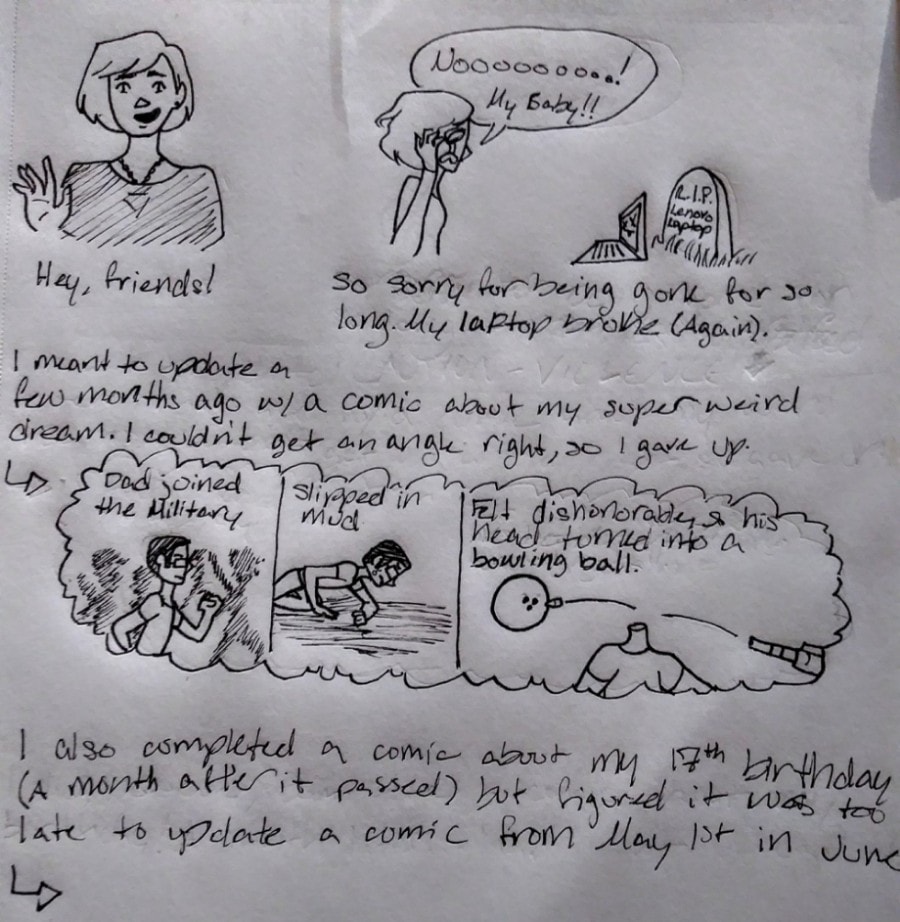 Nooooooooo..!
My Baby!!
R.I.P.
Lenovo
Laptop
Hey, friends!
So sorry for being gone for so
long. My laptop broke (Again).
I meant to update a
few months ago w/ a comic about my super weird
dream. I couldn't get an angle right, so I gave up.
Dad joined
the Military
Slipped in
mud
Felt dishonorable, & his
head turned into a
bowling ball.
I also completed a comic about my 17th birthday
(A month after it passed) but figured it was too
late to update a comic from May 1st in June